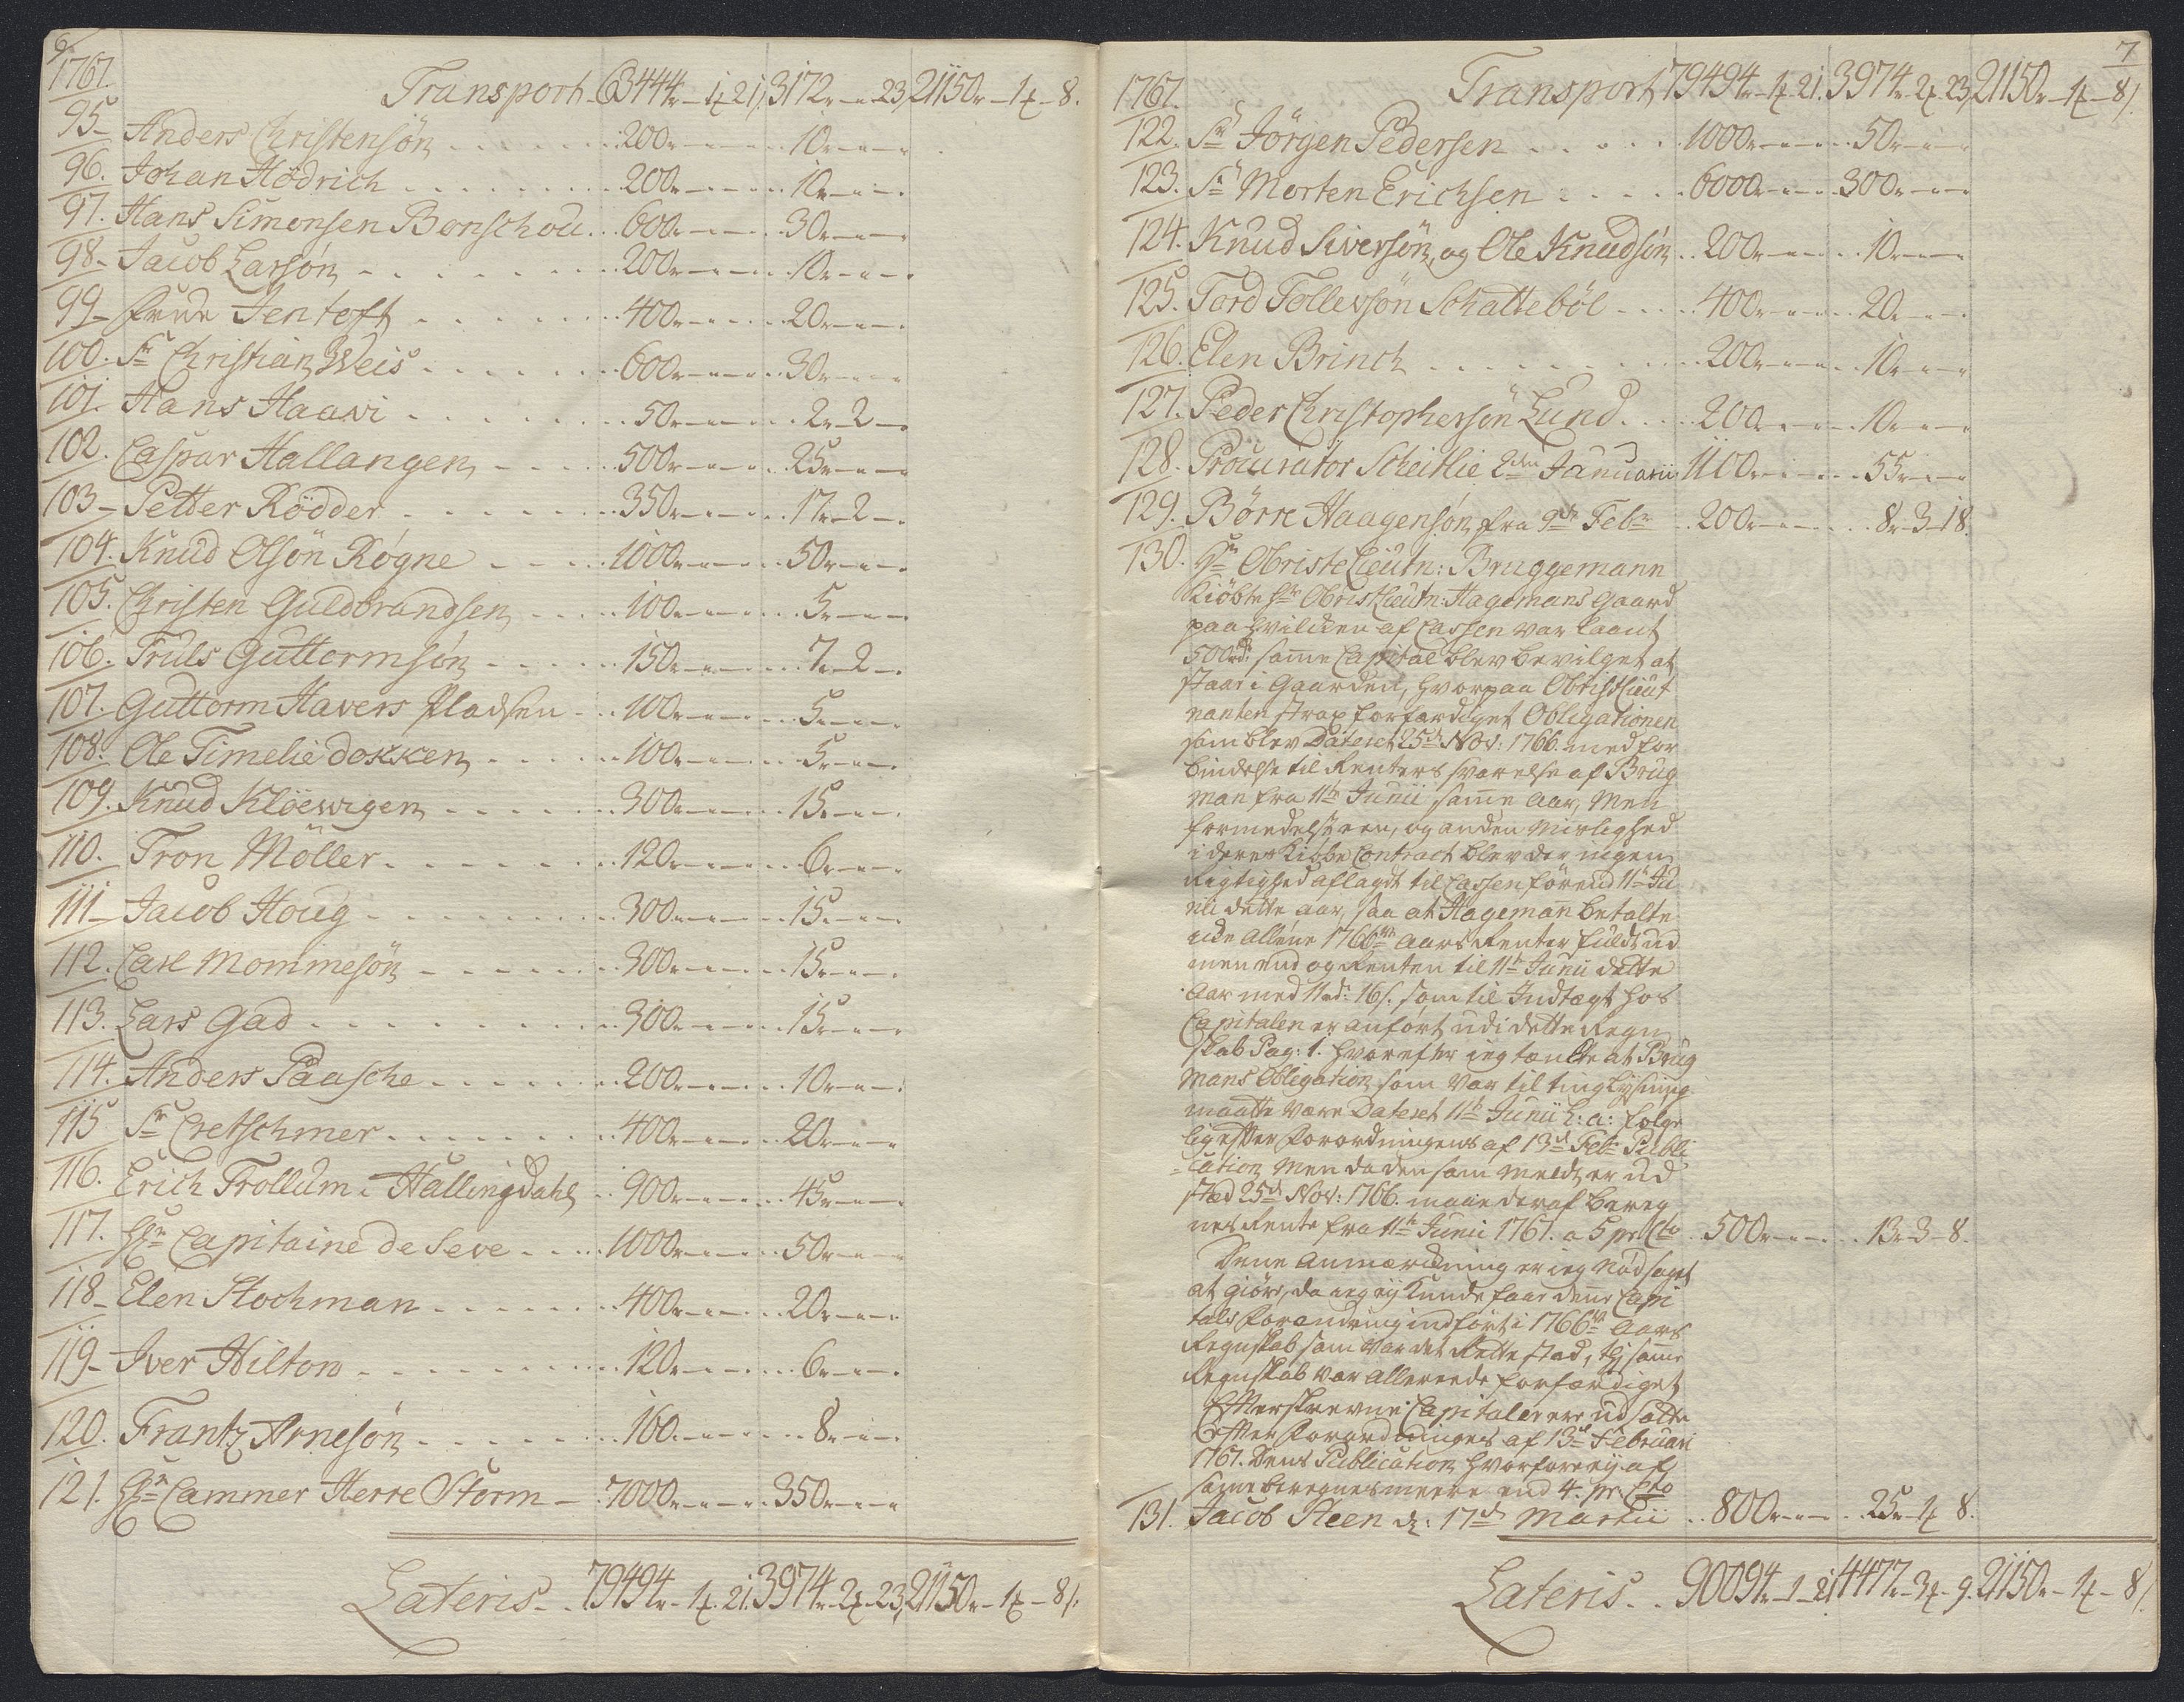 6.
1767.
Transport 63444r-1x-21, 3172r-"-23, 21150r-1x-8.
95- Anders Christensön . . . 200r-"-" . 10r-"-"
96. Johan Hödrich . . . 200r-"-" . 10r-"-"
97. Hans Simonsen Bonschou . . 600r-"-" . 30r-"-"
98- Jacob Larsön . . . 200r-"-" . 10r-"-"
99- Frue Jentoft . . . 400r-"-" . 20r-"-"
100. Sr Christian Weis . . . 600r-"-" . 30r-"-"
101. Hans Haavi . . . 50r-"-" . 2r-2-"
102. Caspar Hallangen . . . 500r-"-" . 25r-"-"
103- Petter Rödder . . . 350r-"-" . 17r-2-"
104. Knud Olsön Rogne . . . 1000r-"-" . 50r-"-"
105. Christen Guldbrandsen . . . 100r-"-" . 5r-"-"
106. Truls Guttormsön . . . 150r-"-" . 7r-2-"
107. Guttorm Havers Pladsen . . 100r-"-" . 5r-"-"
108. Ole Timelie dokken . . . 100r-"-" . 5r-"-"
109. Knud Klöewigen . . . 300r-"-" . 15r-"-"
110. Tron Möller . . . 120r-"-" . 6r-"-"
111- Jacob Houg . . . 300r-"-" . 15r-"-"
112. Carl Mommesön . . . 300r-"-" . 15r-"-"
113. Lars Gad . . . 300r-"-" . 15r-"-"
114. Anders Paasche . . . 200r-"-" . 10r-"-"
115 Sr Cretschmer . . . 400r-"-" . 20r-"-"
116. Erich Trollum i Hallingdahl . . 900r-"-" . 45r-"-"
117. Hr Capitaine de Seve . . . 1000r-"-" . 50r-"-"
118- Elen Stochman . . . 400r-"-" . 20r-"-"
119- Iver Hilton . . . 120r-"-" . 6r-"-"
120. Frantz Arnesön . . . 160r-"-" . 8r-"-"
121. Hr Cammer Herre Storm - . 7000r-"-" . 350r-"-"
Lateris - . 79494r-1x-21. 3974r-2x-23, 21150r-1x-8/.
7
1767.
Transport 79494r-1x-21. 3974r-2x-23, 21150r-1x-8/.
122. Sr Jörgen Pedersen . . . 1000r-"-" . 50r-"-"
123. Sr Morten Erichsen . . . 6000r-"-" . 300r-"-"
124. Knud Siversön, og Ole Knudsön . . 200r-"-" . 10r-"-"
125. Tord Tollevsön Schatteböl . . . 400r-"-" . 20r-"-"
126. Elen Brinch . . . 200r-"-" . 10r-"-"
127. Peder Christophersön Lund . . . 200r-"-" . 10r-"-"
128. Procurator Scheitlie 2den Januarii 1100r-"-" . 55r-"-"
129. Börre Haagensön, fra 9de Febr . . 200r-"-" . 8r-3-18.
130. Hr Obriste Lieutn: Bruggemann
Kiöbte Hr Obristlieutn: Hagemans Gaard
paa hvilcken af Cassen var laant
500rd: samme Capital blev bevilget at
staae i Gaarden, hvorpaa Obristlieut
nanten strax forfærdiget Obligationen
som blev Dateret 25de Nov: 1766. med for
bindelse til Renters svarelse af Brug
man fra 11te Junii samme Aar, Men
formedelst een, og anden Mislighed
i deres Kiöbe Contract blev der ingen
Rigtighed aflagdt til Cassen förend 11te Ju
nii dette aar, saa at Hageman betalte
icke allene 1766de Aars Renter fuldt ud
men end og Renten til 11te Junii dette
Aar med 11rd: 16s. som til Indtægt hos
Capitalen er anfört udi dette Regn
skab Pag: 1. hvorefter jeg tænkte at Brug
mans Obligation som var til tinglysning
maatte være Dateret 11te Junii h: a: fölge
lig efter Forordningens af 13de Febr Publi
cation Men da den som meldt er ud
sted 25de Nov: 1766. maae deraf bereg
nes Rente fra 11te Junii 1767. a 5 prCto . 500r-"-" . 13r-3-8.
Denne Anmærckning er jeg nödsaget
at giöre, da jeg ej kunde faae denne Capi
tals Forandring indfört i 1766de Aars
Regnskab som var det Rette sted, thi samme
Regnskab var allereede forfærdiget
Efterskrevne Capitaler ere udsatte
efter Forordninges af 13de Februari
1767. Dens Publication hvorfore ej af
samme beregnes meere end 4. pr. Cto
131. Jacob Steen d: 17de Martii . . 800r-"-" . 25r-1x-8.
Lateris - . 90094r-1-21. 4477r-3x-9. 21150r-1x-8/.